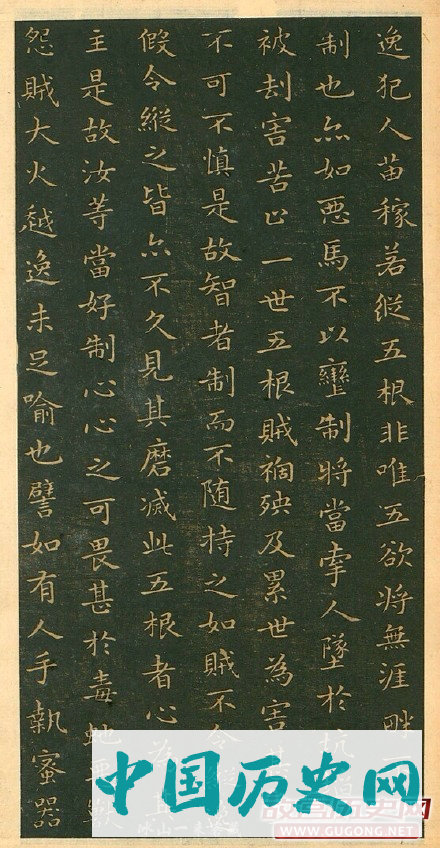 逸犯人苗稼若縱五根非唯五欲将無涯畔
制也亦如惡馬不以轡制将當牽人墜於坑
被刧害苦止一世五根賊禍殃及累世為害
不可不慎是故智者制而不随持之如賊不令
假令縱之皆亦不久見其磨滅此五根者心
主是故汝等當好制心心之可畏甚於毒蛇
怨賊大火越逸未足喻也譬如有人手執蜜器
中国历史网
WWW.GUGONG.NET